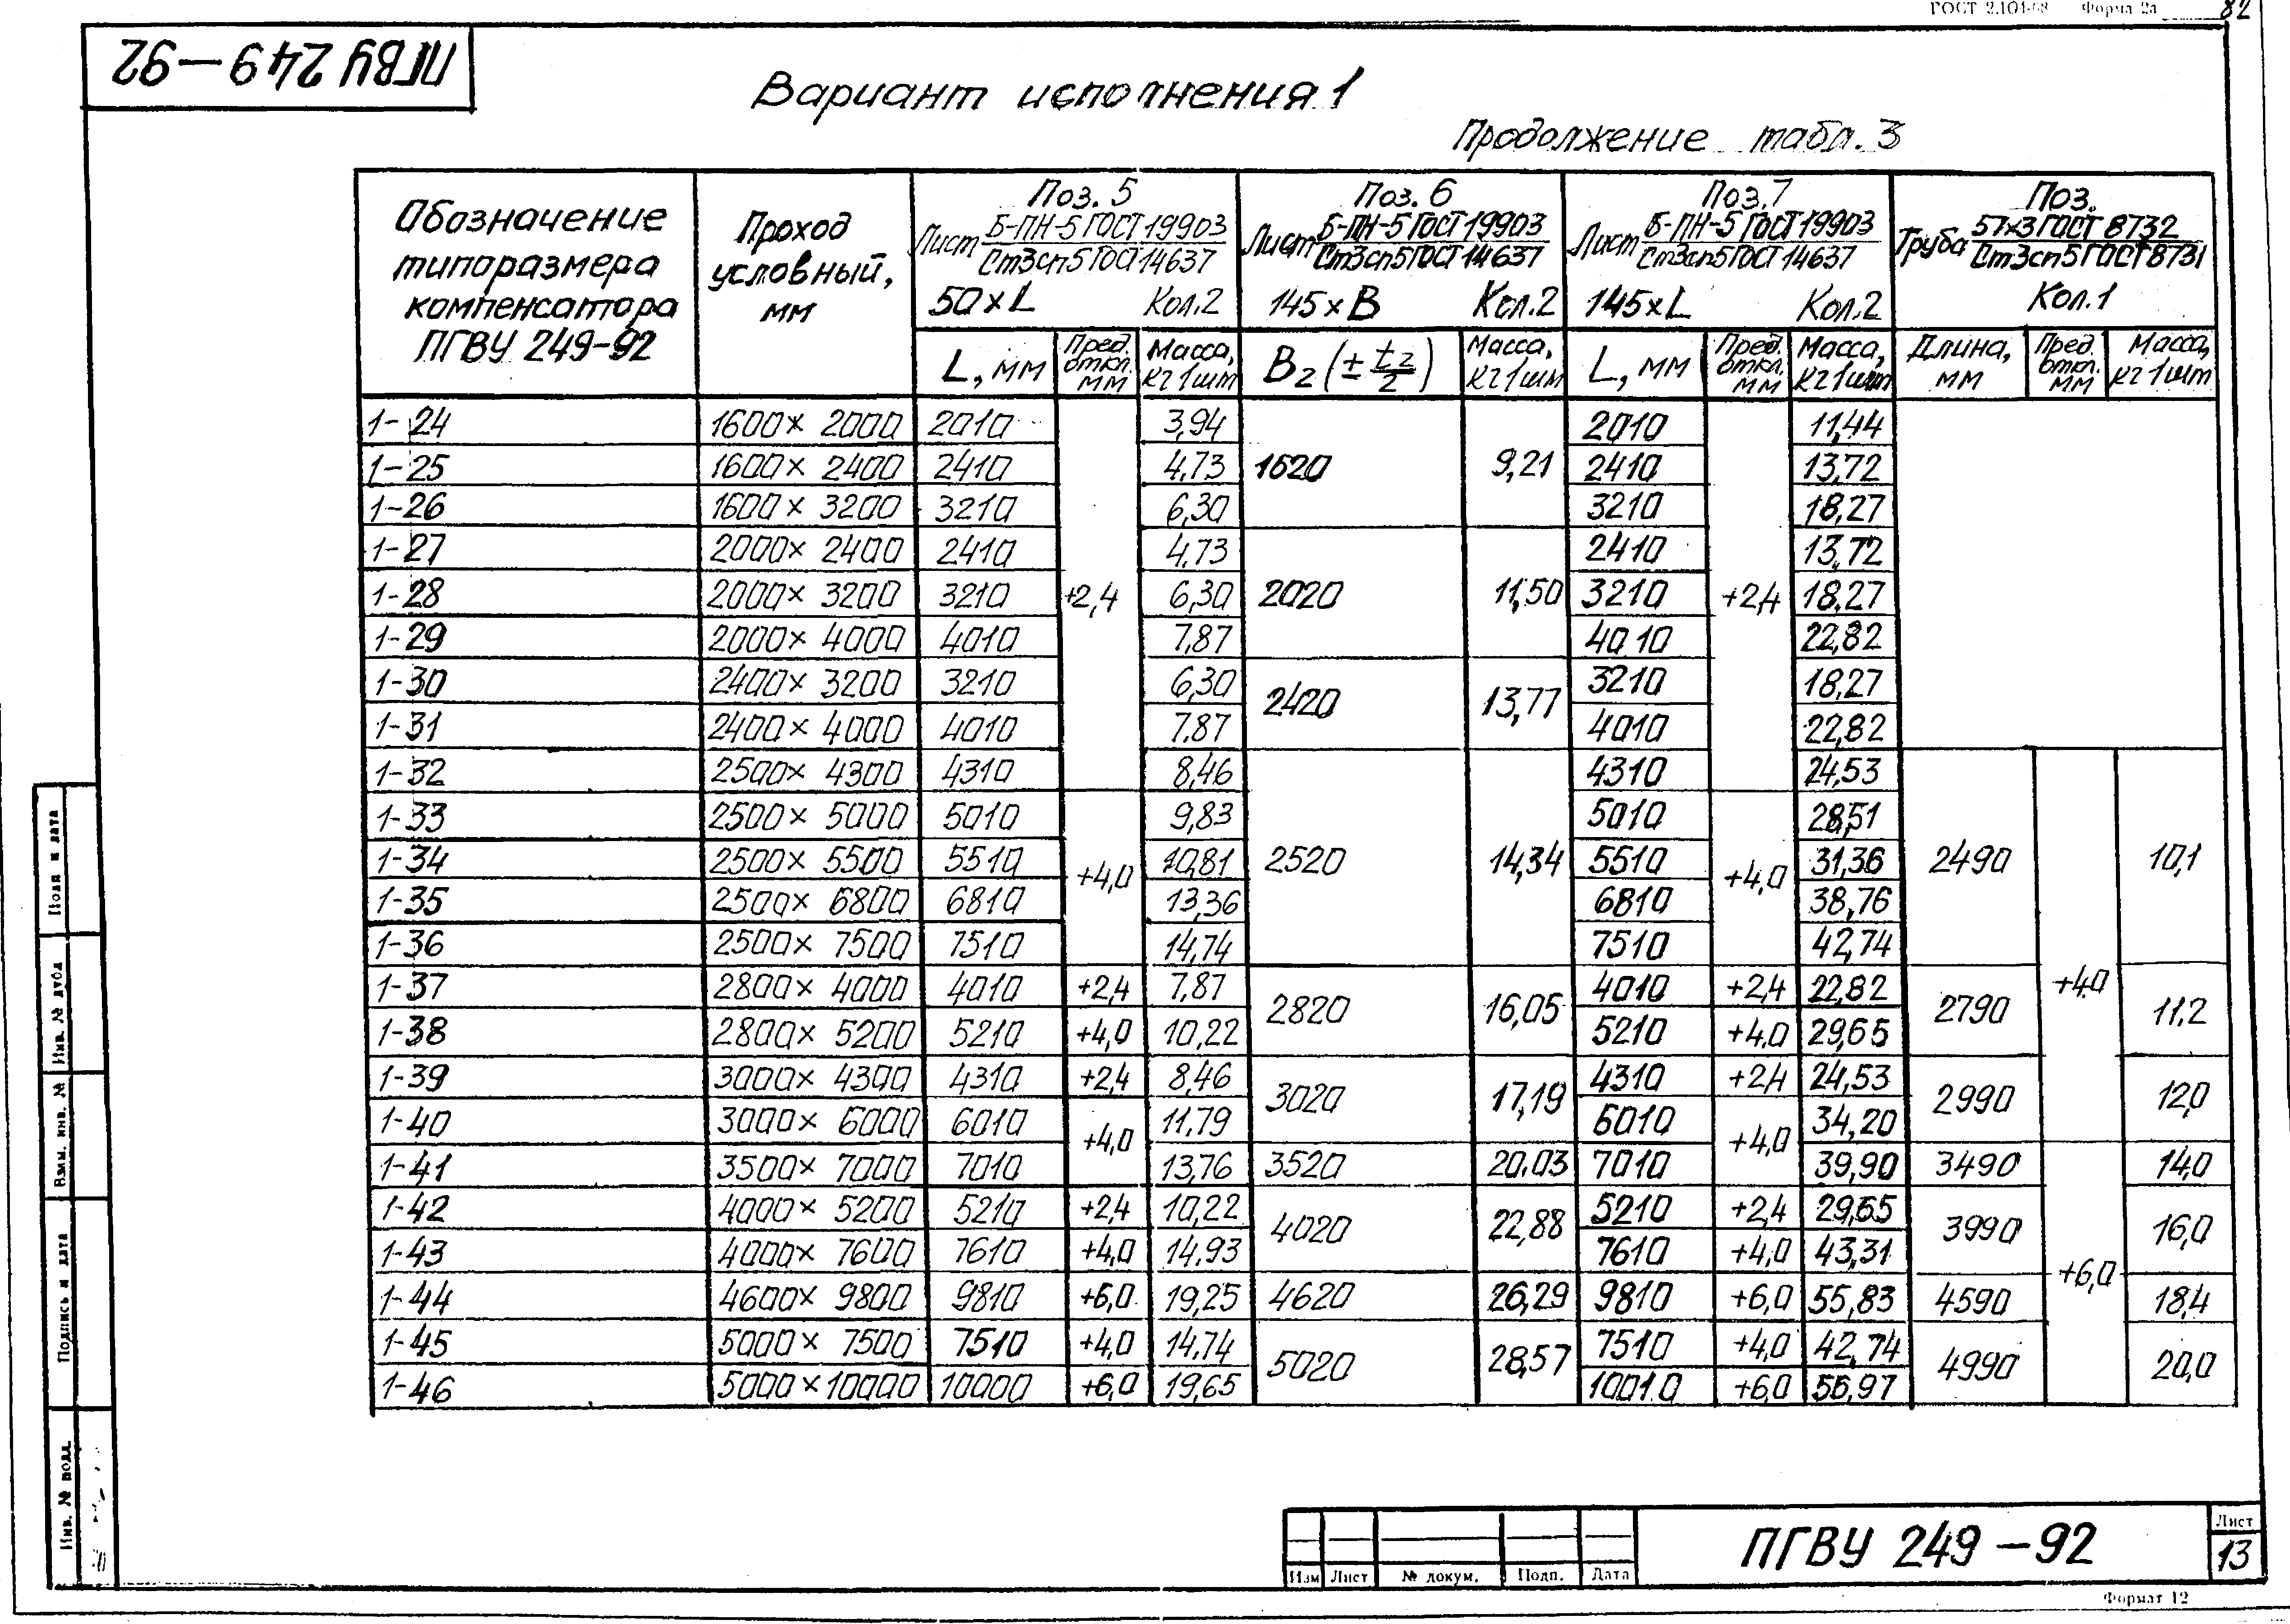 ГОСТ 2.104-68 Форма 2а 82
ПГВУ 249-92
Вариант исполнения 1
Продолжение табл. 3
Обозначение типоразмера компенсатора ПГВУ 249-92
Проход условный, мм
Поз. 5
Лист Б-ПН-5 ГОСТ 19903 / Ст3сп5 ГОСТ 14637
50×L Кол. 2
Поз. 6
Лист Б-ПН-5 ГОСТ 19903 / Ст3сп5 ГОСТ 14637
145×B Кол. 2
Поз. 7
Лист Б-ПН-5 ГОСТ 19903 / Ст3сп5 ГОСТ 14637
145×L Кол. 2
Поз.
Труба 57×3 ГОСТ 8732 / Ст3сп5 ГОСТ 8731
Кол. 1
L, мм Пред. откл. мм Масса, кг 1 шт B2 (± t2/2) Масса, кг 1 шт L, мм Пред. откл. мм Масса, кг 1 шт Длина, мм Пред. откл. мм Масса, кг 1 шт
1-24 1600×2000 2010 3,94 2010 11,44
1-25 1600×2400 2410 4,73 1620 9,21 2410 13,72
1-26 1600×3200 3210 6,30 3210 18,27
1-27 2000×2400 2410 4,73 2410 13,72
1-28 2000×3200 3210 +2,4 6,30 2020 11,50 3210 +2,4 18,27
1-29 2000×4000 4010 7,87 4010 22,82
1-30 2400×3200 3210 6,30 2420 13,77 3210 18,27
1-31 2400×4000 4010 7,87 4010 22,82
1-32 2500×4300 4310 8,46 4310 24,53
1-33 2500×5000 5010 9,83 5010 28,51
1-34 2500×5500 5510 +4,0 10,81 2520 14,34 5510 +4,0 31,36 2490 10,1
1-35 2500×6800 6810 13,36 6810 38,76
1-36 2500×7500 7510 14,74 7510 42,74
1-37 2800×4000 4010 +2,4 7,87 2820 16,05 4010 +2,4 22,82 2790 +4,0 11,2
1-38 2800×5200 5210 +4,0 10,22 5210 +4,0 29,65
1-39 3000×4300 4310 +2,4 8,46 3020 17,19 4310 +2,4 24,53 2990 12,0
1-40 3000×6000 6010 +4,0 11,79 6010 +4,0 34,20
1-41 3500×7000 7010 13,76 3520 20,03 7010 39,90 3490 14,0
1-42 4000×5200 5210 +2,4 10,22 4020 22,88 5210 +2,4 29,65 3990 16,0
1-43 4000×7600 7610 +4,0 14,93 7610 +4,0 43,31 +6,0
1-44 4600×9800 9810 +6,0 19,25 4620 26,29 9810 +6,0 55,83 4590 18,4
1-45 5000×7500 7510 +4,0 14,74 5020 28,57 7510 +4,0 42,74 4990 20,0
1-46 5000×10000 10000 +6,0 19,65 10010 +6,0 56,97
Подп и дата
Инв. № дубл
Взам. инв. №
Подпись и дата
Инв. № подл.
Изм Лист № докум. Подп. Дата
ПГВУ 249-92
Лист
13
Формат 12